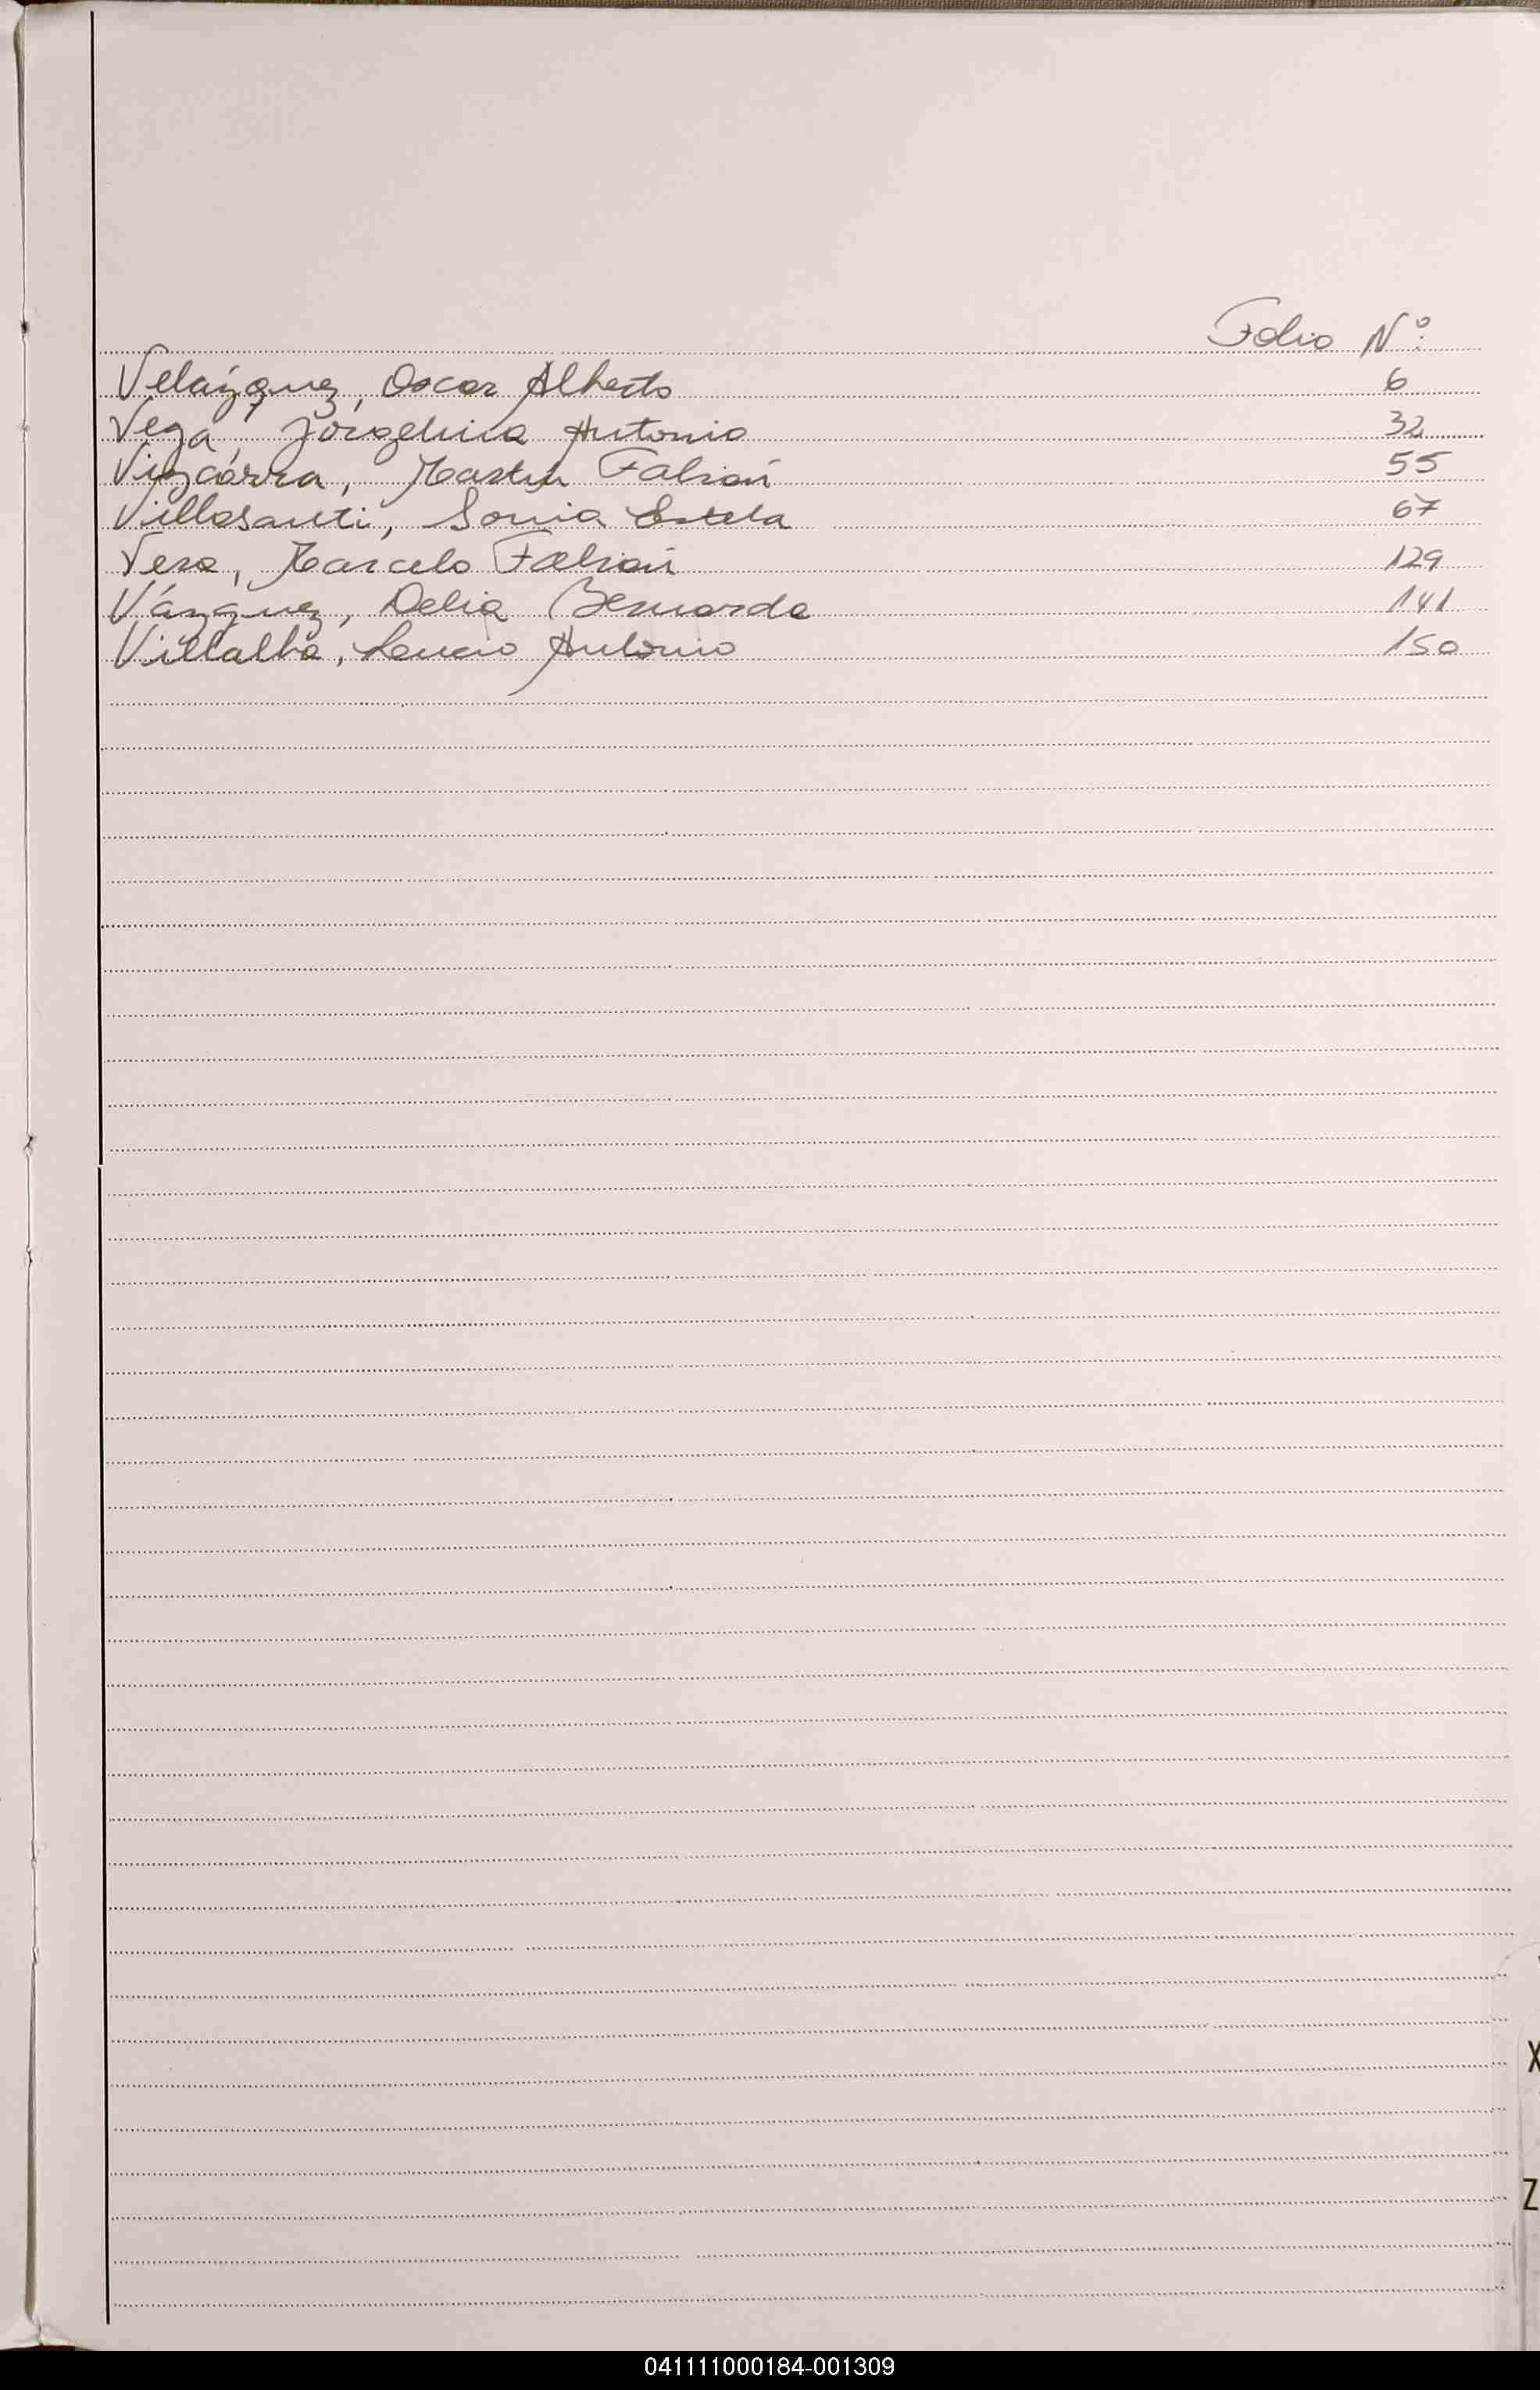 Folio Nº:
Velázquez, Oscar Alberto 6
Vega, Jorgelina Antonia 32
Vizcarra, Martín Fabián 55
Villasanti, Sonia Estela 67
Vera, Marcelo Fabián 129
Vázquez, Delia Bernarda 141
Villalba, Lucio Antonio 150
X
Z
041111000184-001309